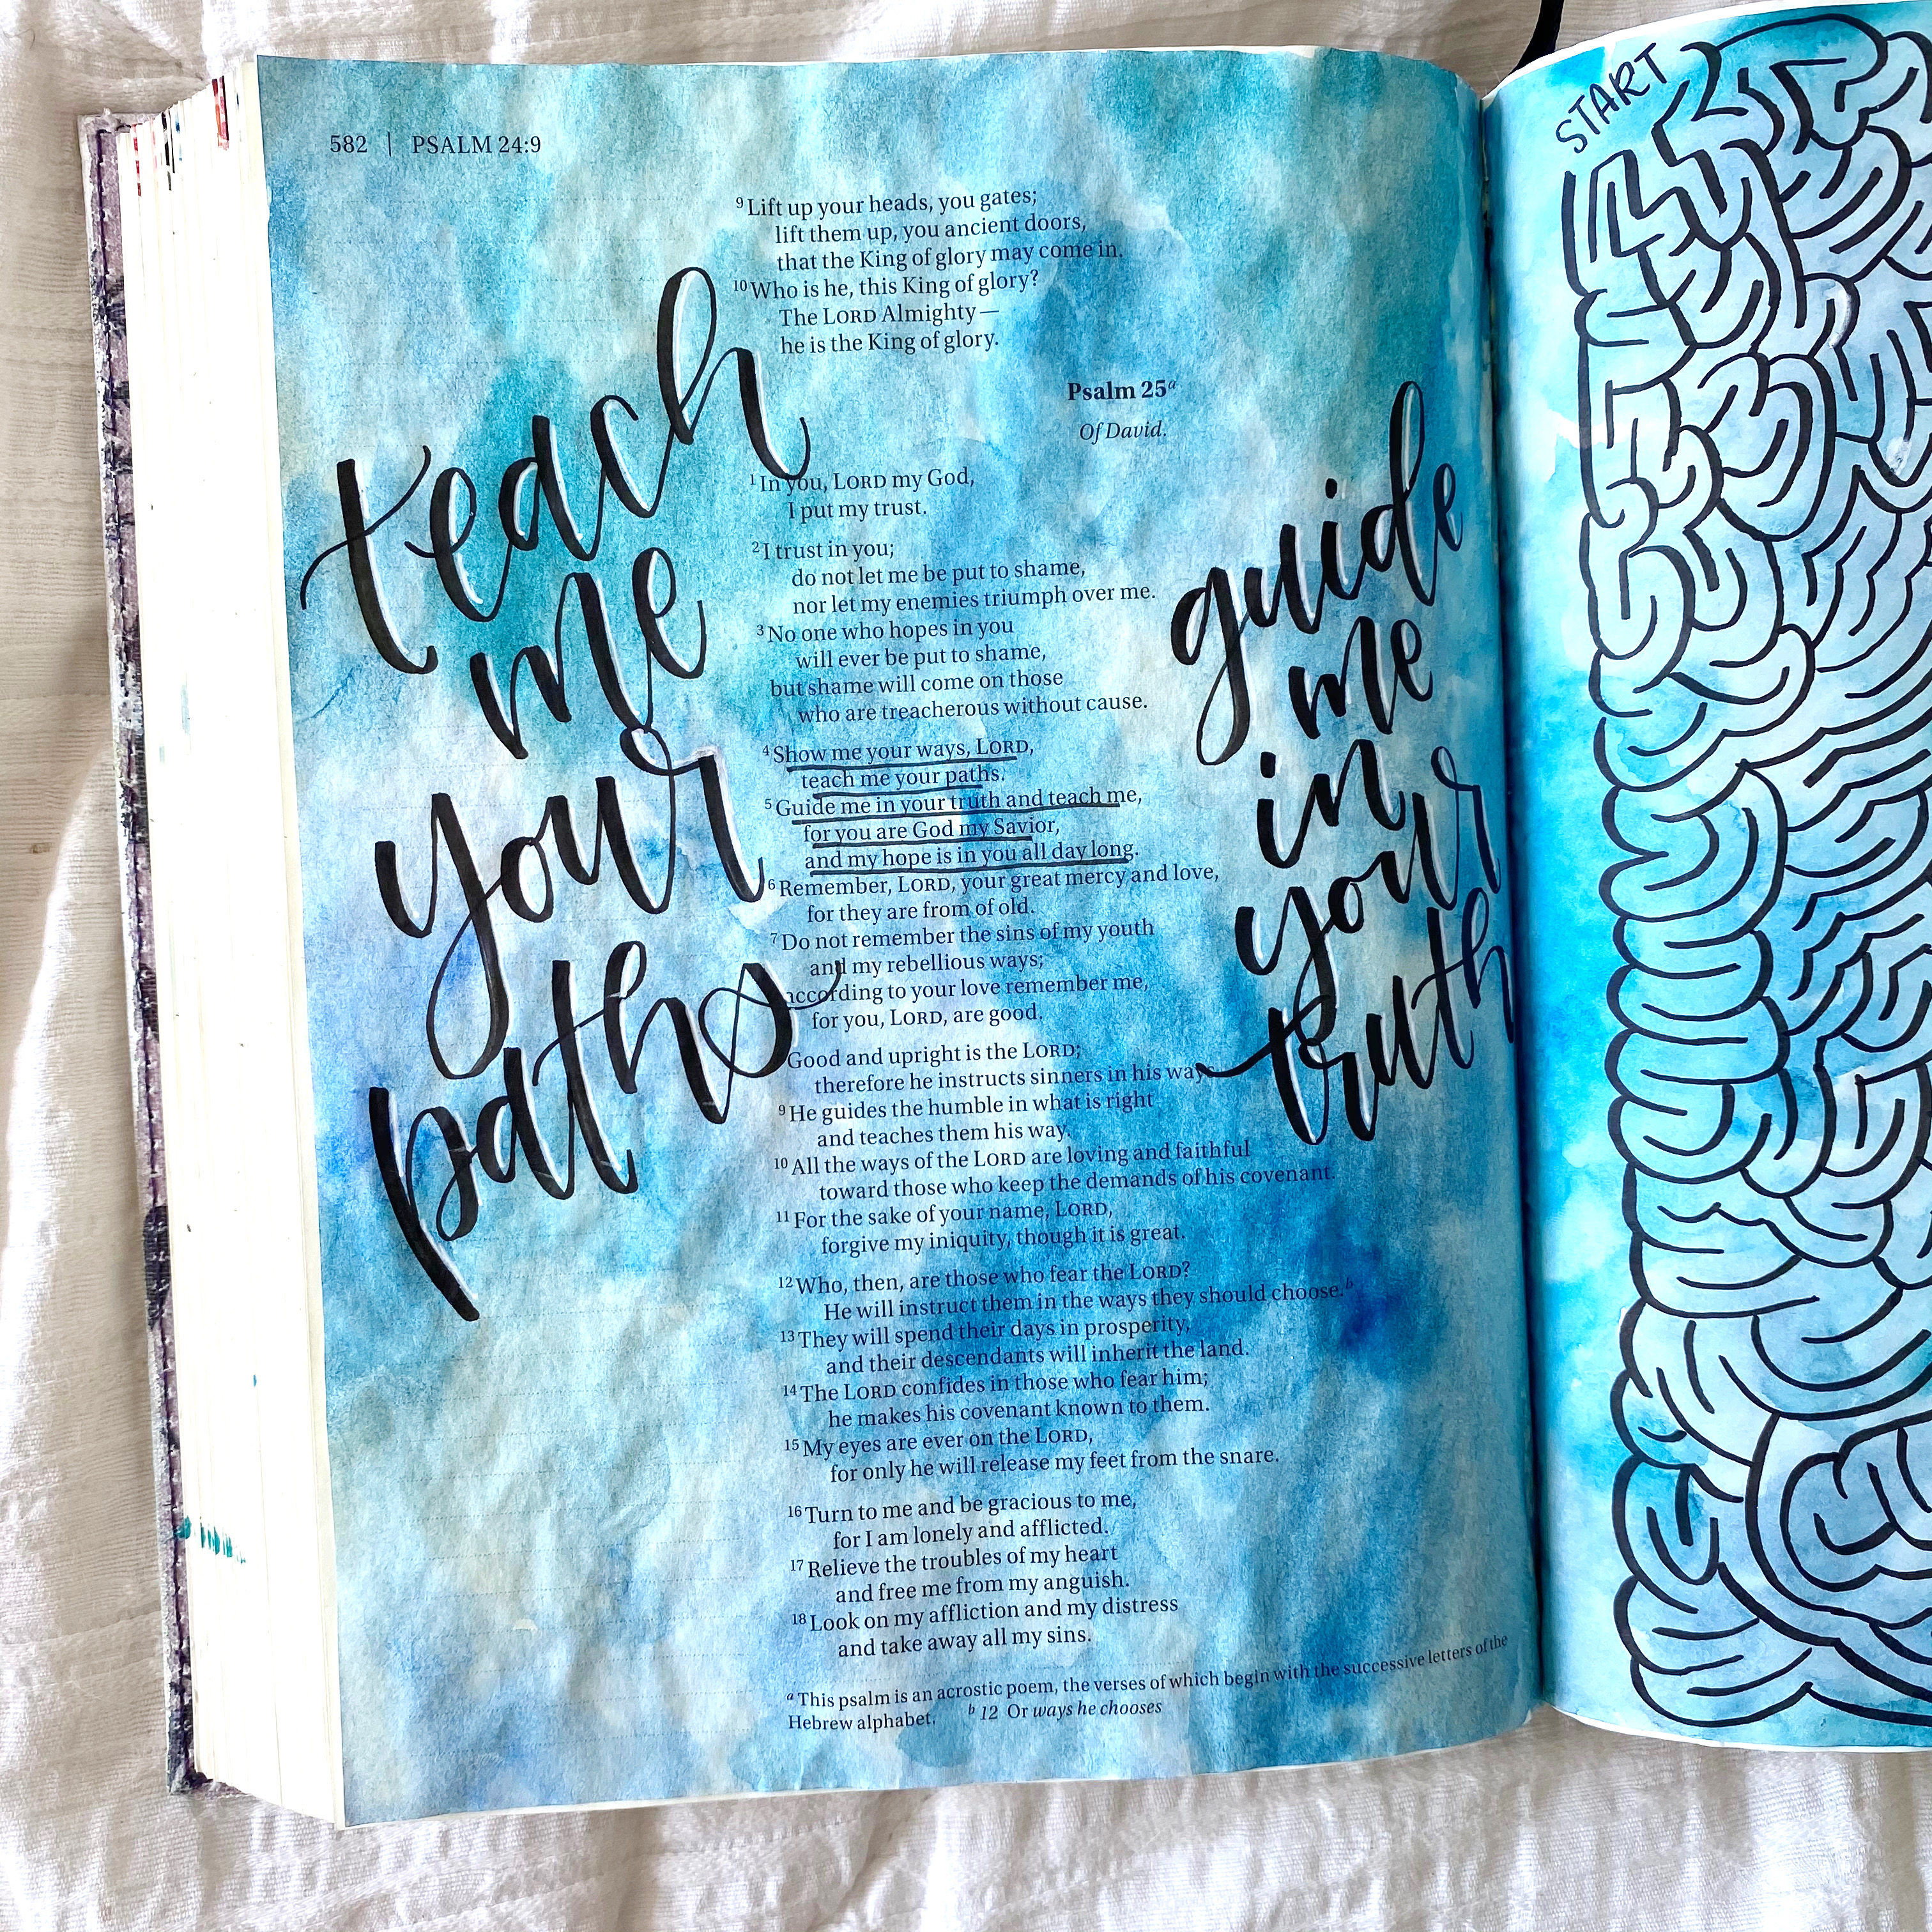 582 | PSALM 24:9
⁹Lift up your heads, you gates;
lift them up, you ancient doors,
that the King of glory may come in.
¹⁰Who is he, this King of glory?
The LORD Almighty—
he is the King of glory.
Psalm 25ᵃ
Of David.
¹In you, LORD my God,
I put my trust.
²I trust in you;
do not let me be put to shame,
nor let my enemies triumph over me.
³No one who hopes in you
will ever be put to shame,
but shame will come on those
who are treacherous without cause.
⁴Show me your ways, LORD,
teach me your paths.
⁵Guide me in your truth and teach me,
for you are God my Savior,
and my hope is in you all day long.
⁶Remember, LORD, your great mercy and love,
for they are from of old.
⁷Do not remember the sins of my youth
and my rebellious ways;
according to your love remember me,
for you, LORD, are good.
Good and upright is the LORD;
therefore he instructs sinners in his ways
⁹He guides the humble in what is right
and teaches them his way.
¹⁰All the ways of the LORD are loving and faithful
toward those who keep the demands of his covenant.
¹¹For the sake of your name, LORD,
forgive my iniquity, though it is great.
¹²Who, then, are those who fear the LORD?
He will instruct them in the ways they should choose.ᵇ
¹³They will spend their days in prosperity,
and their descendants will inherit the land.
¹⁴The LORD confides in those who fear him;
he makes his covenant known to them.
¹⁵My eyes are ever on the LORD,
for only he will release my feet from the snare.
¹⁶Turn to me and be gracious to me,
for I am lonely and afflicted.
¹⁷Relieve the troubles of my heart
and free me from my anguish.
¹⁸Look on my affliction and my distress
and take away all my sins.
ᵃ This psalm is an acrostic poem, the verses of which begin with the successive letters of the
Hebrew alphabet. ᵇ 12 Or ways he chooses
teach
me
your
paths
guide
me
in
your
truth
START